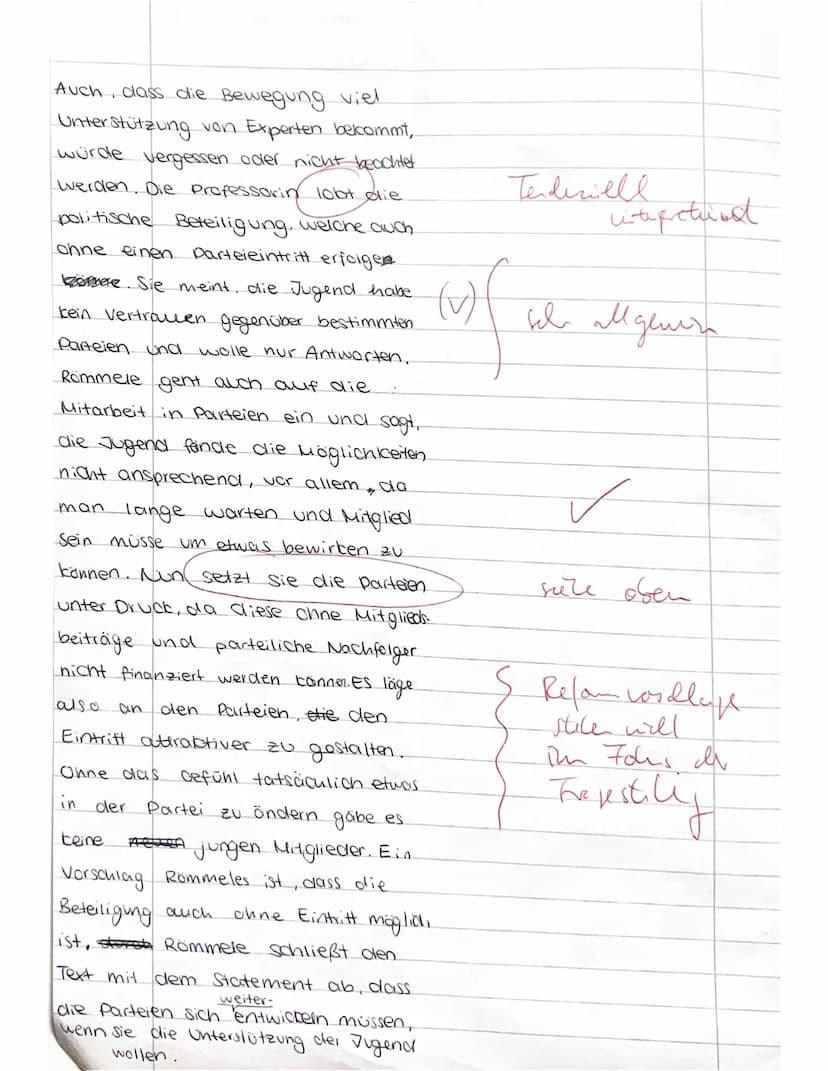 Auch, dass die Bewegung viel
Unterstützung von Experten bekommt,
würde vergessen oder nicht beachtet
werden. Die Professorin lobt die
Tendenziell
interpretierend
politische Beteiligung, welche auch
ohne einen Parteieintritt erfolgen
könnte. Sie meint, die Jugend habe
kein Vertrauen gegenüber bestimmten
(v) sehr allgemein
Parteien und wolle nur Antworten.
Römmele geht auch auf die
Mitarbeit in Parteien ein und sagt,
die Jugend fände die Möglichkeiten
nicht ansprechend, vor allem, da
man lange warten und Mitglied
✓
sein müsse um etwas bewirken zu
können. Nun setzt sie die Parteien
siehe oben
unter Druck, da diese ohne Mitglieds-
beiträge und parteiliche Nachfolger
nicht finanziert werden können. Es läge
Reformvorschläge
also an den Parteien, die den
stehen nicht
Eintritt attraktiver zu gestalten.
im Fokus der
Ohne das Gefühl tatsäculich etwas
Fragestellg
in der Partei zu ändern gäbe es
keine neuen jungen Mitglieder. Ein
Vorschlag Römmeles ist, dass die
Beteiligung auch ohne Eintritt möglich
ist, durch Römmele schließt den
Text mit dem Statement ab, dass
die Parteien sich weiter-entwickeln müssen,
wenn sie die Unterstützung der Jugend
wollen.